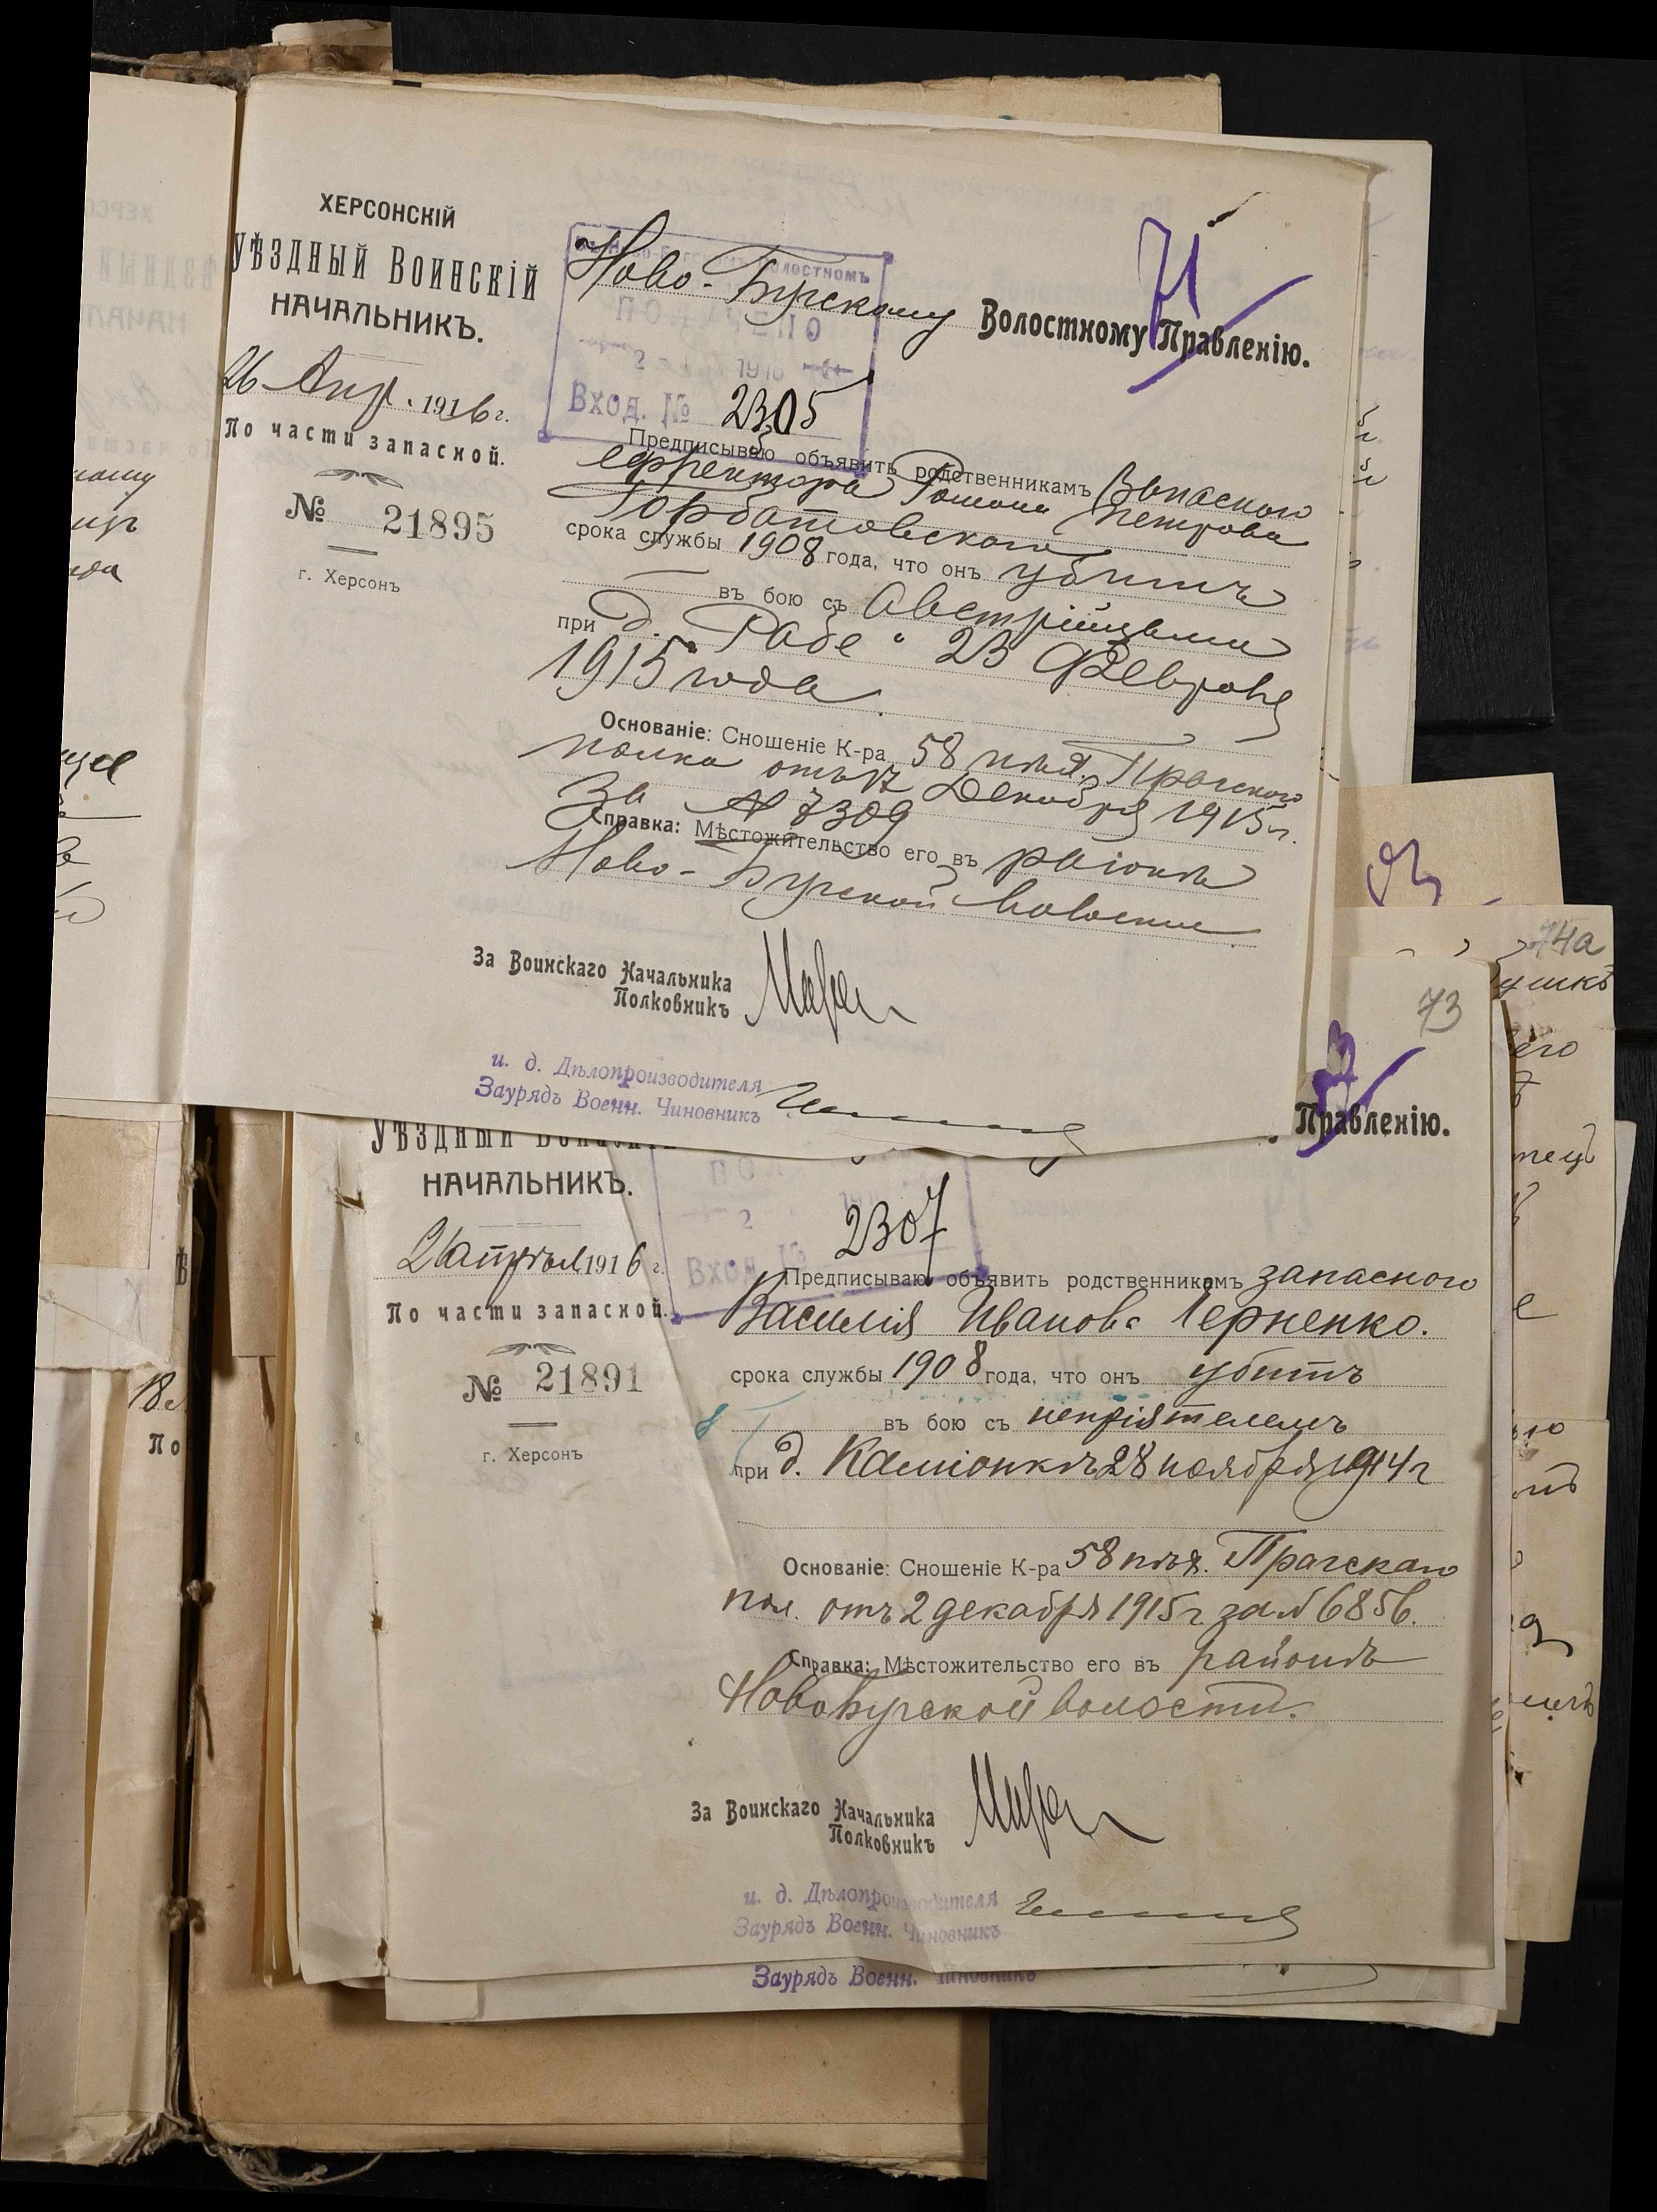 ХЕРСОНСКІЙ
УѢЗДНЫЙ ВОИНСКІЙ
НАЧАЛЬНИКЪ.
26 Апр. 1916 г.
По части запасной.
№ 21895
г. Херсонъ
71
Ново-Бугскому Волостному Правленію.
ПОЛУЧЕНО
2 1916
Вход. № 2305
Предписываю объявить родственникамъ Запасного
ефрейтора Романа Петрова
Горбатовского
срока службы 1908 года, что онъ убитъ
въ бою съ Австрійцами
при д. "Рабе" 23 Февраля
1915 года.
Основаніе: Сношеніе К-ра 58 пѣх. Прагского
полка отъ 17 Декабря 1915 г.
За № 7309
Справка: Мѣстожительство его въ раіонѣ
Ново-Бугской волости.
За Воинскаго Начальника
Полковникъ
и. д. Дѣлопроизводителя
Заурядъ Военн. Чиновникъ
74а
73
Правленію.
УѢЗДНЫЙ ВОИНСКІЙ
НАЧАЛЬНИКЪ.
26 апрѣля 1916 г.
По части запасной.
№ 21891
г. Херсонъ
2
Вход. № 2307
Предписываю объявить родственникамъ запасного
Василія Иванова Черненко.
срока службы 1908 года, что онъ убитъ
въ бою съ непріятелемъ
при д. Каміонкѣ 28 ноября 1914 г
Основаніе: Сношеніе К-ра 58 пѣх. Прагскаго
пол. отъ 2 декабря 1915 г. за № 6856.
Справка: Мѣстожительство его въ районѣ
Ново Бугской волости.
За Воинскаго Начальника
Полковникъ
и. д. Дѣлопроизводителя
Заурядъ Военн. Чиновникъ
Заурядъ Военн. Чиновникъ